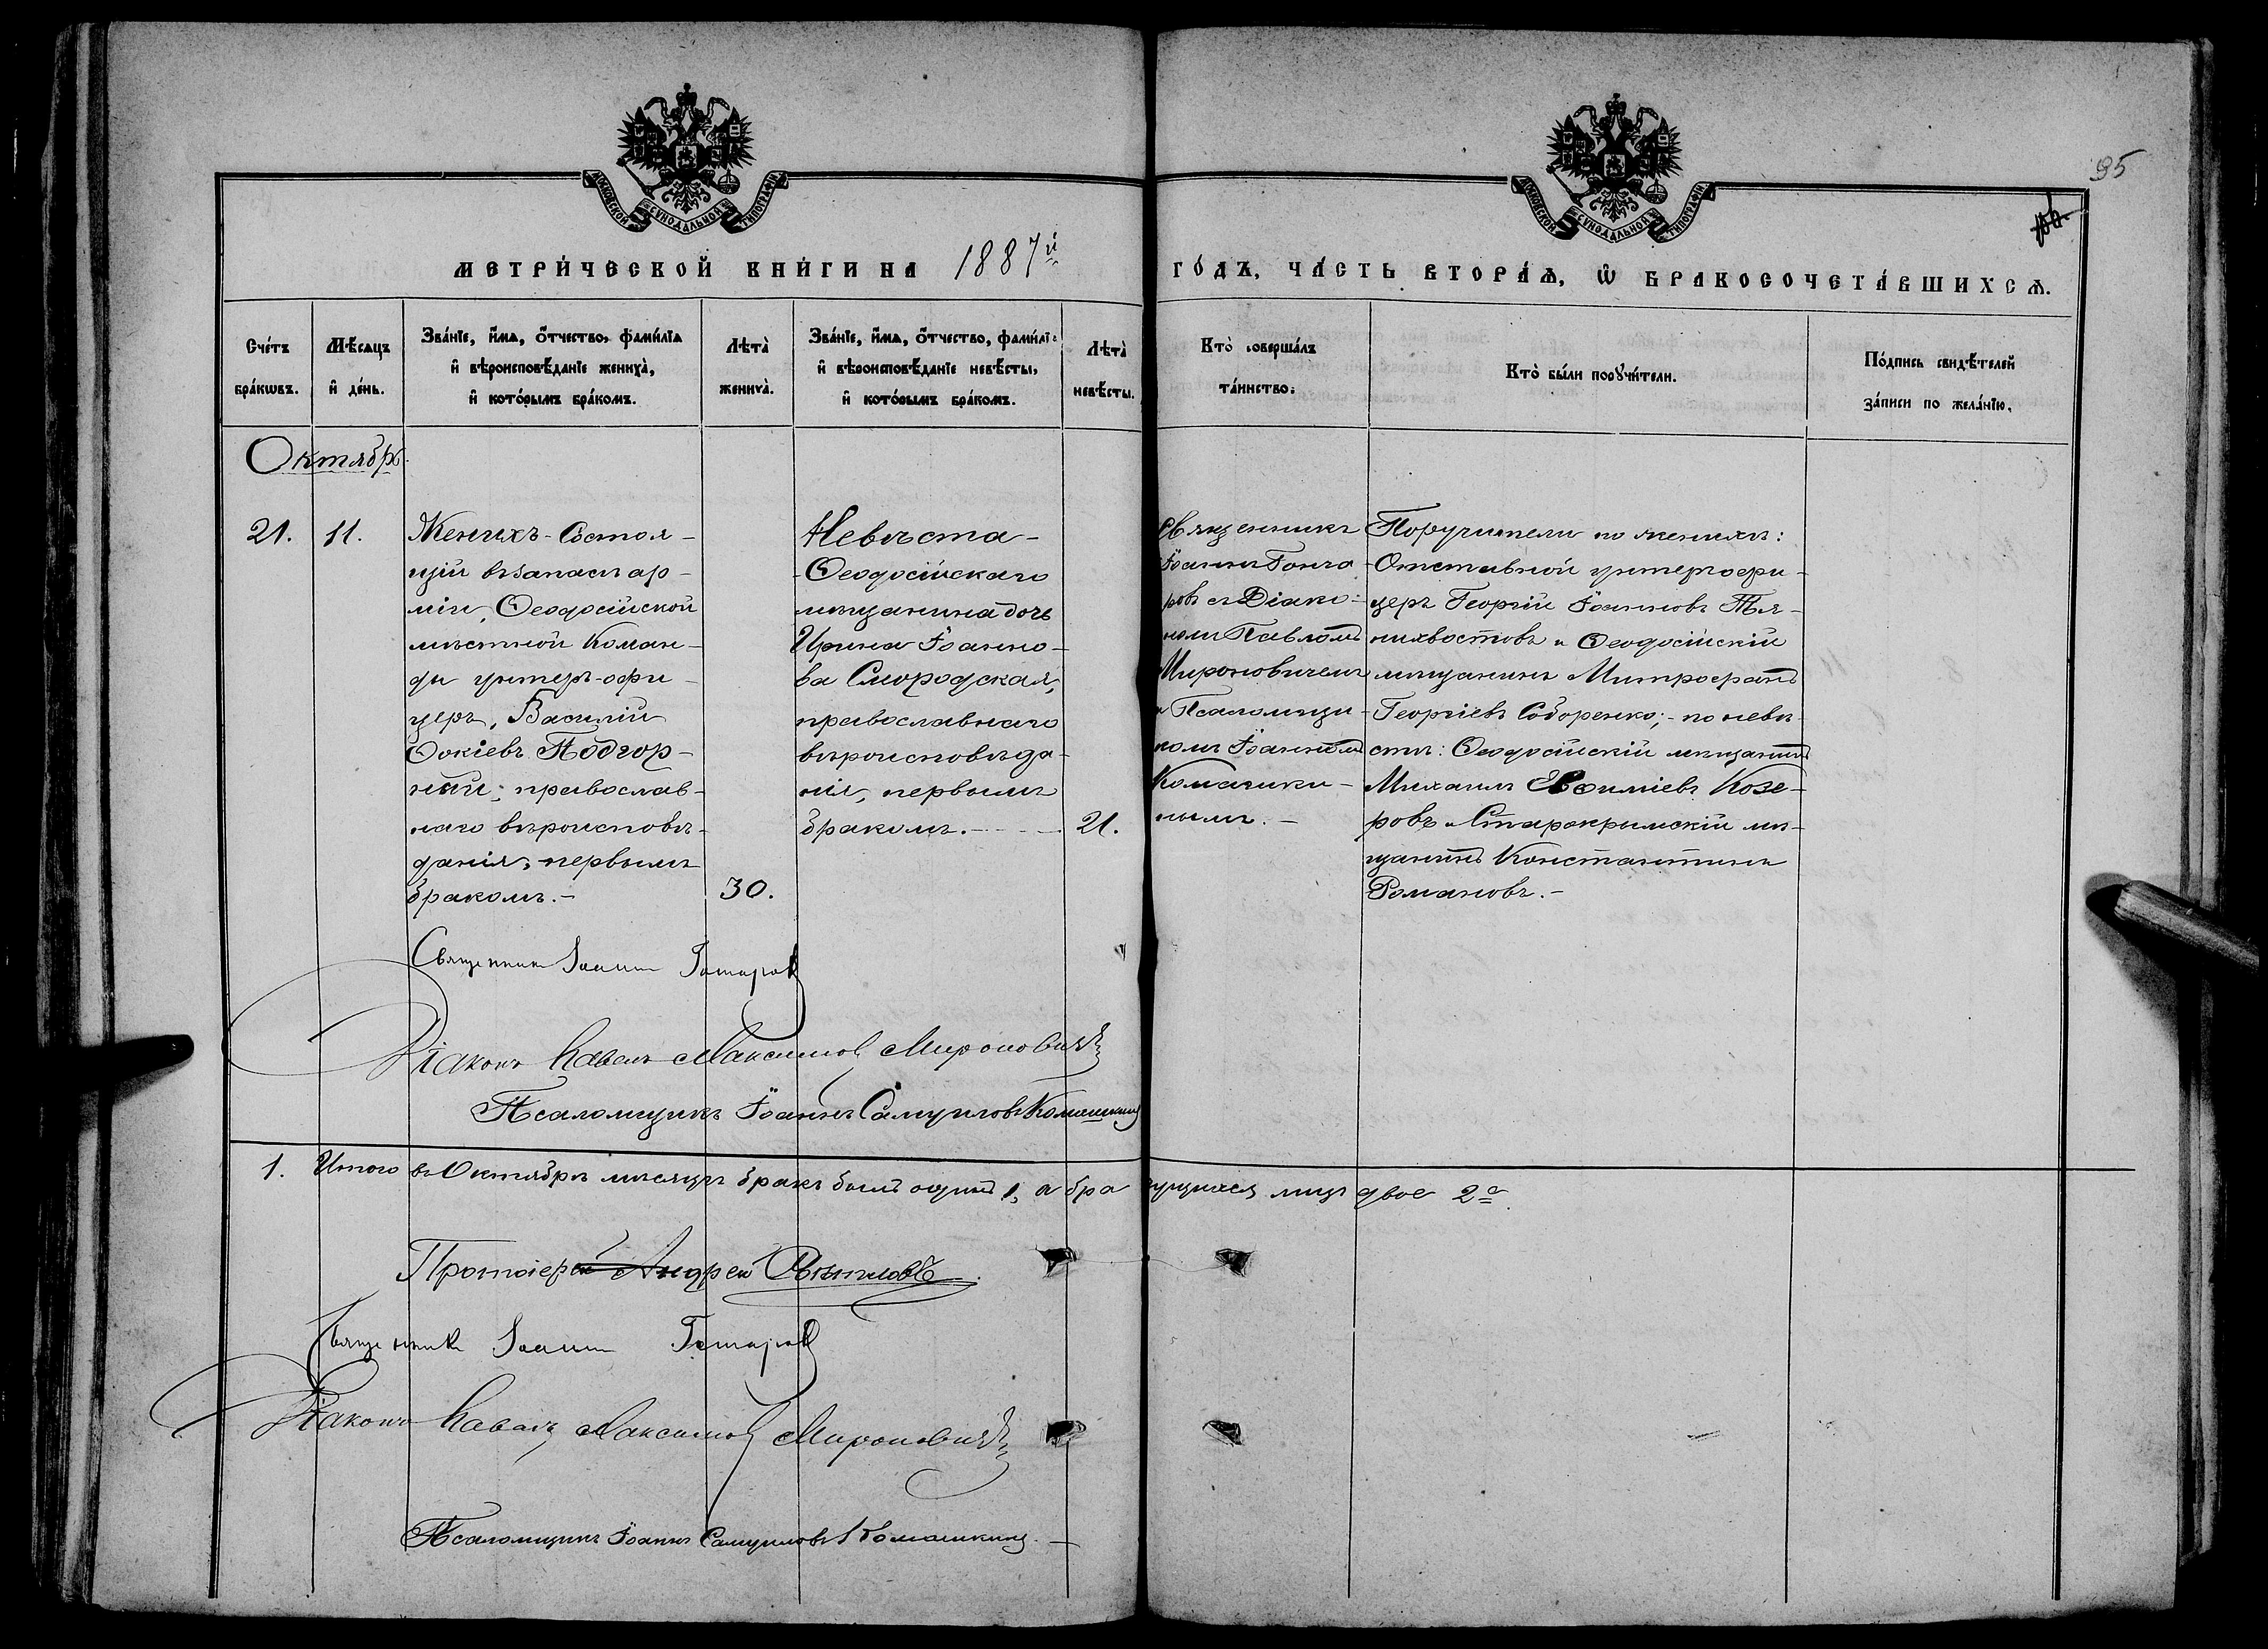 МОСКОВСКОЙ СѴНОДАЛЬНОЙ ТИПОГРАФІИ
МОСКОВСКОЙ СѴНОДАЛЬНОЙ ТИПОГРАФІИ
95
МЕТРИ́ЧЕСКОЙ КНИ́ГИ НА 1887й
ГО́ДЪ, ЧА́СТЬ ВТОРА́Ѧ, Ѡ҆ БРАКОСОЧЕТА́ВШИХСѦ.
Сче́тъ бра́кѡвъ.
Мѣ́сяцъ и҆ де́нь.
Зва́нїе, и҆́мѧ, ѻ҆́тчество, фами́лїѧ и҆ вѣроисповѣ́данїе жениха̀, и҆ кото́рымъ бра́комъ.
Лѣта̀ жениха̀.
Зва́нїе, и҆́мѧ, ѻ҆́тчество, фами́лїѧ и҆ вѣроисповѣ́данїе невѣ́сты, и҆ кото́рымъ бра́комъ.
Лѣта̀ невѣ́сты.
Кто̀ соверша́лъ та́инство.
Кто̀ бы́ли порꙋчи́тели.
По́дпись свидѣ́телей за́писи по жела́нїю.
Октябрь.
21.
11.
Женихъ - Состоя-
щій въ запасѣ ар-
міи, Ѳеодосійской
мѣстной Коман-
ды унтеръ-офи-
церъ, Василій
Ѳокіевъ Подгор-
ный; православ-
наго вѣроисповѣ-
данія, первымъ
бракомъ.-
30.
Невѣста -
Ѳеодосійскаго
мѣщанина дочь
Ирина Іоанно-
ва Смородская,
православнаго
вѣроисповѣда-
нія, первымъ
бракомъ.
21.
Священникъ
Іоаннъ Гонча
ровъ съ Діако-
номъ Павломъ
Мироновичемъ
и Псаломщи-
комъ Іоанномъ
Комашки-
нымъ.-
Поручители по женихѣ:
Отставной унтеръ-офи-
церъ Георгій Іоанновъ Тя-
нихвостовъ и Ѳеодосійскій
мѣщанинъ Митрофанъ
Георгіевъ Соборенко; - по невѣ-
стѣ: Ѳеодосійскій мѣщанинъ
Михаилъ Евѳиміевъ Козе-
ровъ и Старокрымскій мѣ-
щанинъ Константинъ
Романовъ.-
Священникъ Іоаннъ Гончаровъ
Діаконъ Павелъ Максимовъ Мироновичъ
Псаломщикъ Іоаннъ Самуиловъ Комашкинъ
1. Итого въ Октябрѣ мѣсяцѣ бракъ былъ одинъ 1, а бра чущихся лицъ двое 2е.
Протоіерей Андрей
Священникъ Іоаннъ Гончаровъ
Діаконъ Павелъ Максимовъ Мироновичъ
Псаломщикъ Іоаннъ Самуиловъ Комашкинъ.